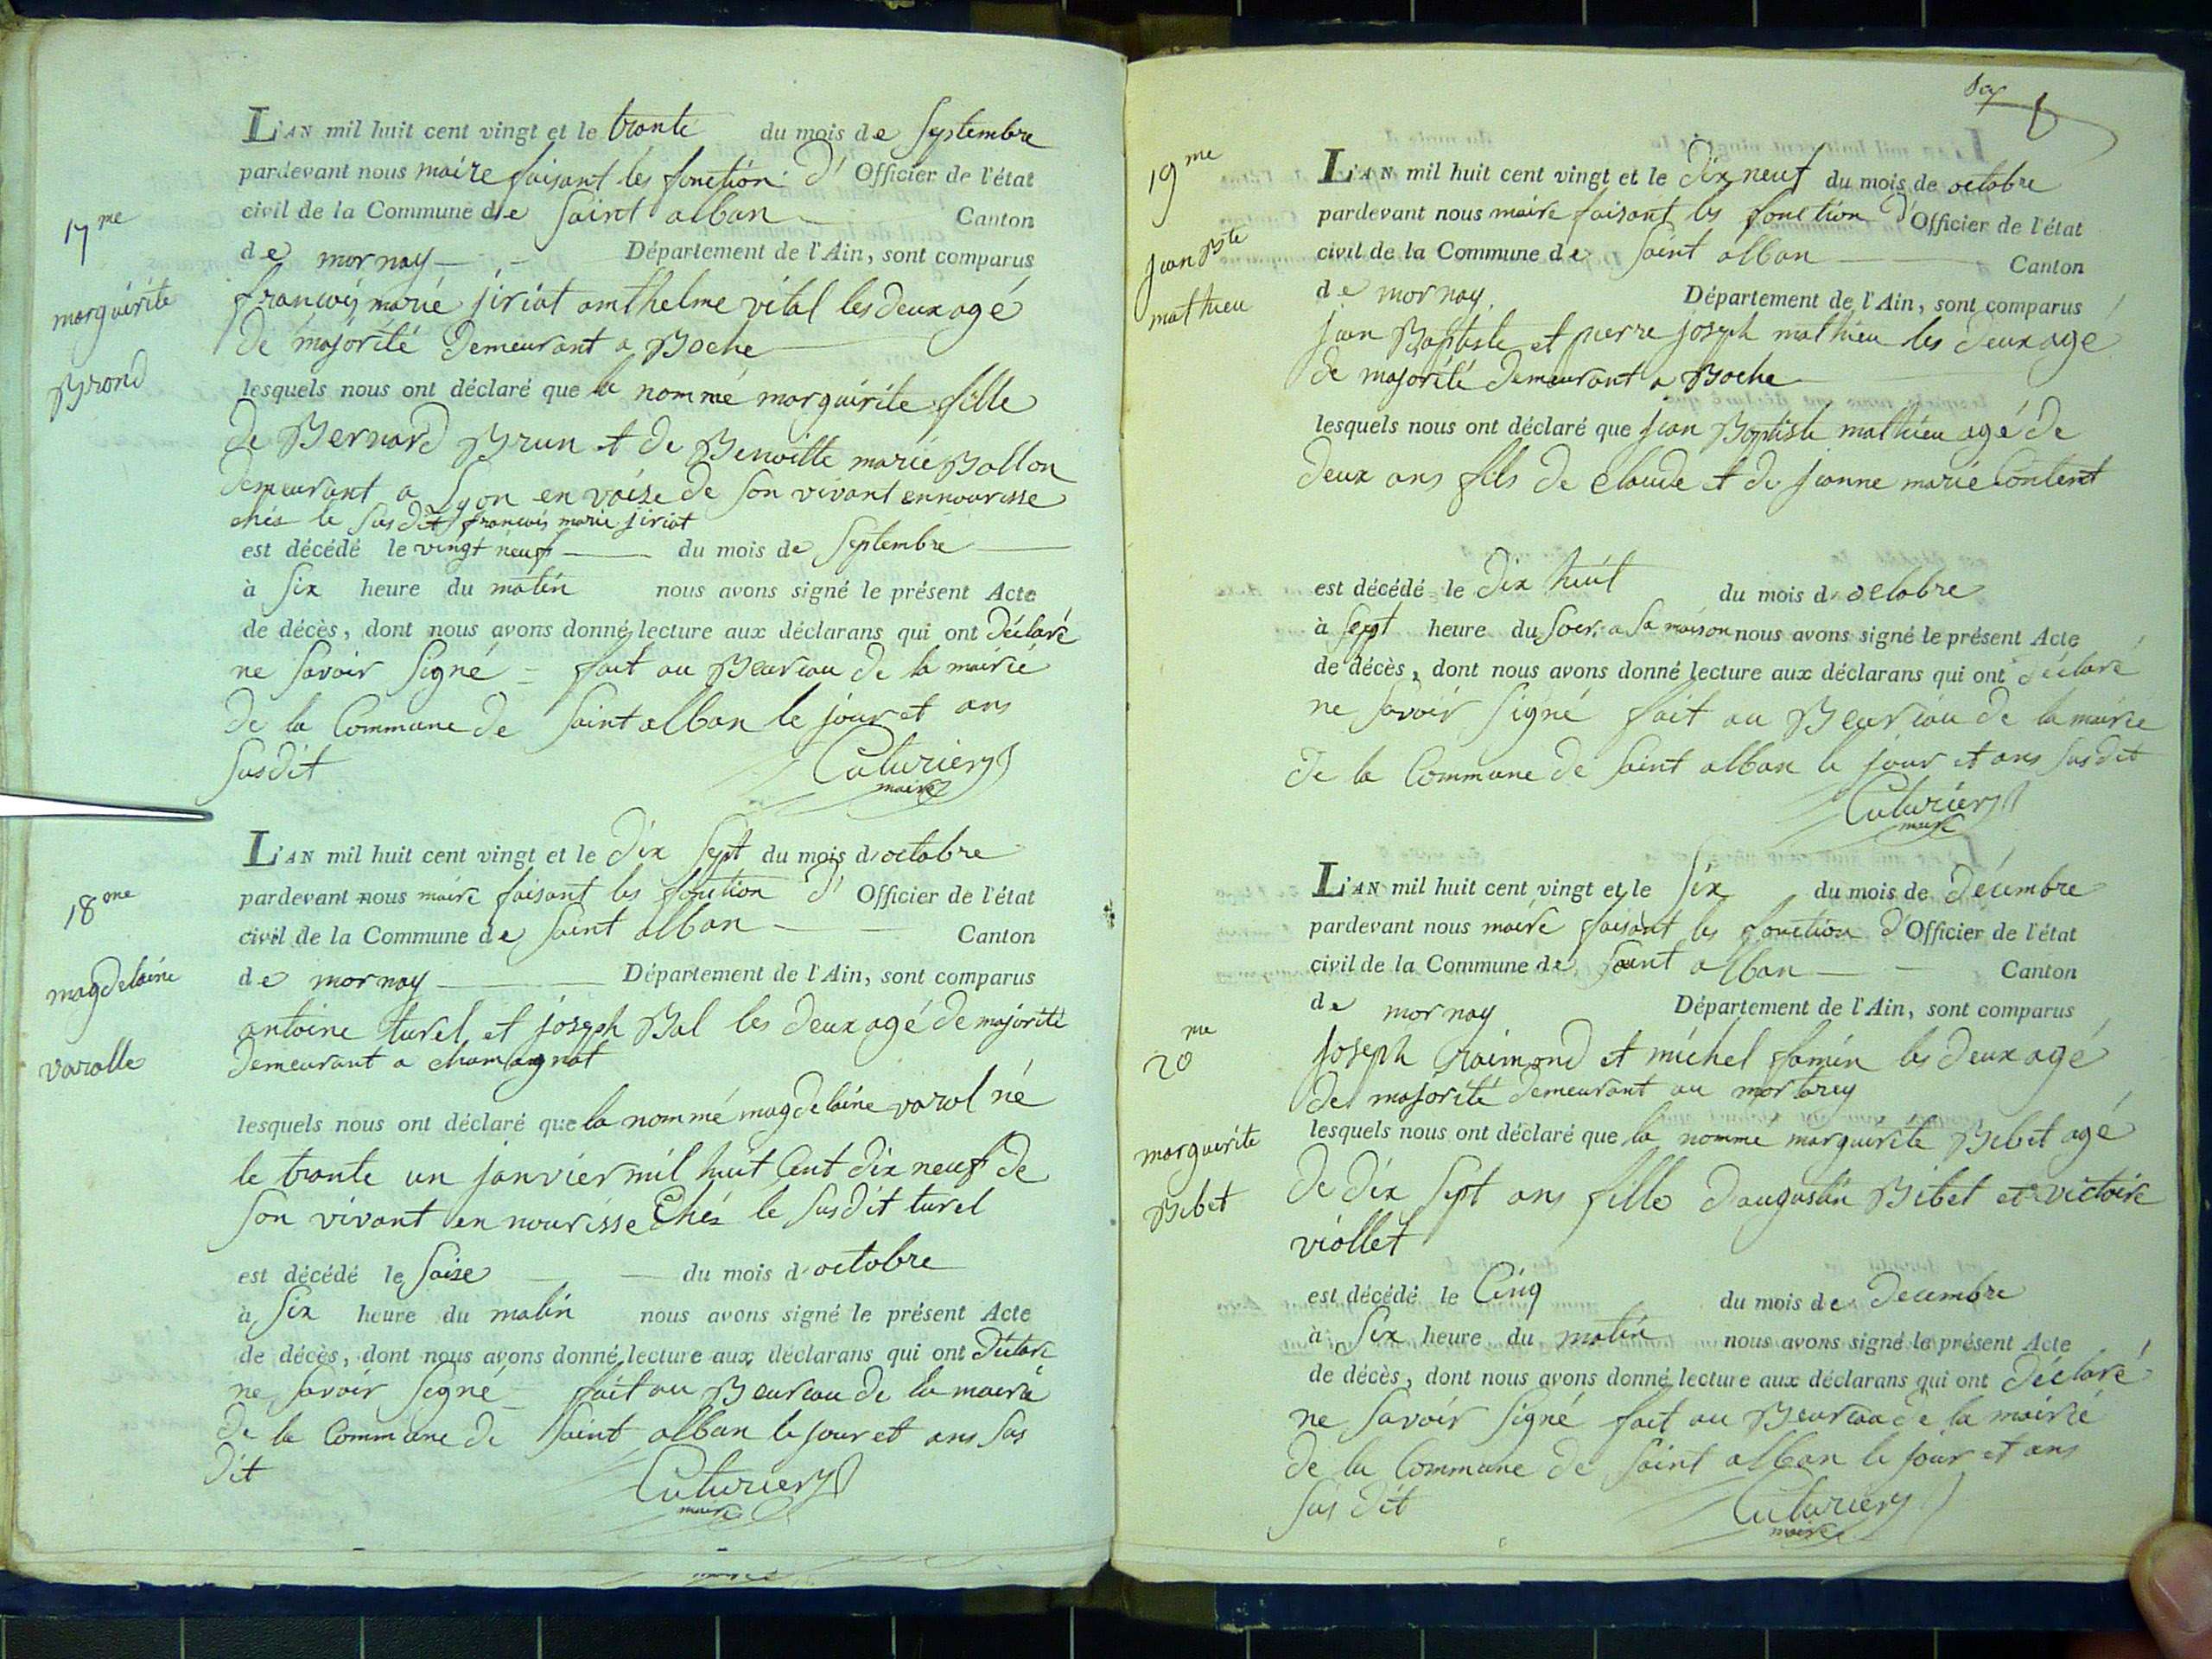 17me
marguérite
Brond
L'AN mil huit cent vingt et le trante du mois de Septembre
pardevant nous maire faisant les fonction d' Officier de l'état
civil de la Commune de Saint alban Canton
de mornay Département de l'Ain, sont comparus
francois marie jiriat anthelme vital les deux agé
de majorité Demeurant a Boche
lesquels nous ont déclaré que la nommé marguirite fille
de Bernard Brun et de Benoitte marie Ballon
demeurant a Lyon en vaise de son vivant en nourisse
chés le susdit francois marie jiriat
est décédé le vingt neuf du mois de Septembre
à Six heure du matin nous avons signé le présent Acte
de décès, dont nous avons donné lecture aux déclarans qui ont Déclaré
ne savoir Signé fait au Beureau de la mairie
de la Commune de Saint alban le jour et ans
susdit
Cuturier
maire
18me
magdelaine
varolle
L'AN mil huit cent vingt et le Dix Sept du mois d'octobre
pardevant nous maire faisant les fonction d' Officier de l'état
civil de la Commune de Saint alban Canton
de mornay Département de l'Ain, sont comparus
antoine turel et joseph Bal les deux agé de majorité
demeurant a chamagnat
lesquels nous ont déclaré que la nommé magdelaine varol né
le trante un janvier mil huit Cent dix neuf de
son vivant en nourisse Chés le susdit turel
est décédé le saise du mois d'octobre
à Six heure du matin nous avons signé le présent Acte
de décès, dont nous avons donné lecture aux déclarans qui ont Déclaré
ne savoir Signé fait au Beureau de la mairie
de la Commune de Saint alban le jour et ans sus
dit
Cuturier
maire
19me
jean Bte
mathieu
L'AN mil huit cent vingt et le Dix neuf du mois de octobre
pardevant nous maire faisant les fonction d' Officier de l'état
civil de la Commune de Saint alban Canton
de mornay Département de l'Ain, sont comparus
jean Baptiste et pierre joseph mathieu les deux agé
de majorité demeurant a Boche
lesquels nous ont déclaré que jean Baptiste mathieu agé de
deux ans fils de claude et de jeanne marie Content
est décédé le dix huit du mois d'octobre
à sept heure du soir a sa maison nous avons signé le présent Acte
de décès, dont nous avons donné lecture aux déclarans qui ont déclaré
ne savoir Signé fait au Beureau de la mairie
de la Commune de Saint alban le jour et ans susdit
Cuturier
maire
20me
marguerite
Bibet
L'AN mil huit cent vingt et le Six du mois de décembre
pardevant nous maire faisant les fonction d' Officier de l'état
civil de la Commune de Saint alban Canton
de mornay Département de l'Ain, sont comparus
joseph raimond et michel famin les deux agé
de majorité demeurant au mortarey
lesquels nous ont déclaré que la nomme marguerite Bibet agé
de dix Sept ans fille d'augustin Bibet et victoire
viollet
est décédé le Cinq du mois de Decembre
à Six heure du matin nous avons signé le présent Acte
de décès, dont nous avons donné lecture aux déclarans qui ont Déclaré
ne savoir Signé fait au Beureau de la mairie
de la Commune de Saint alban le jour et ans
sus dit
Cuturier
maire